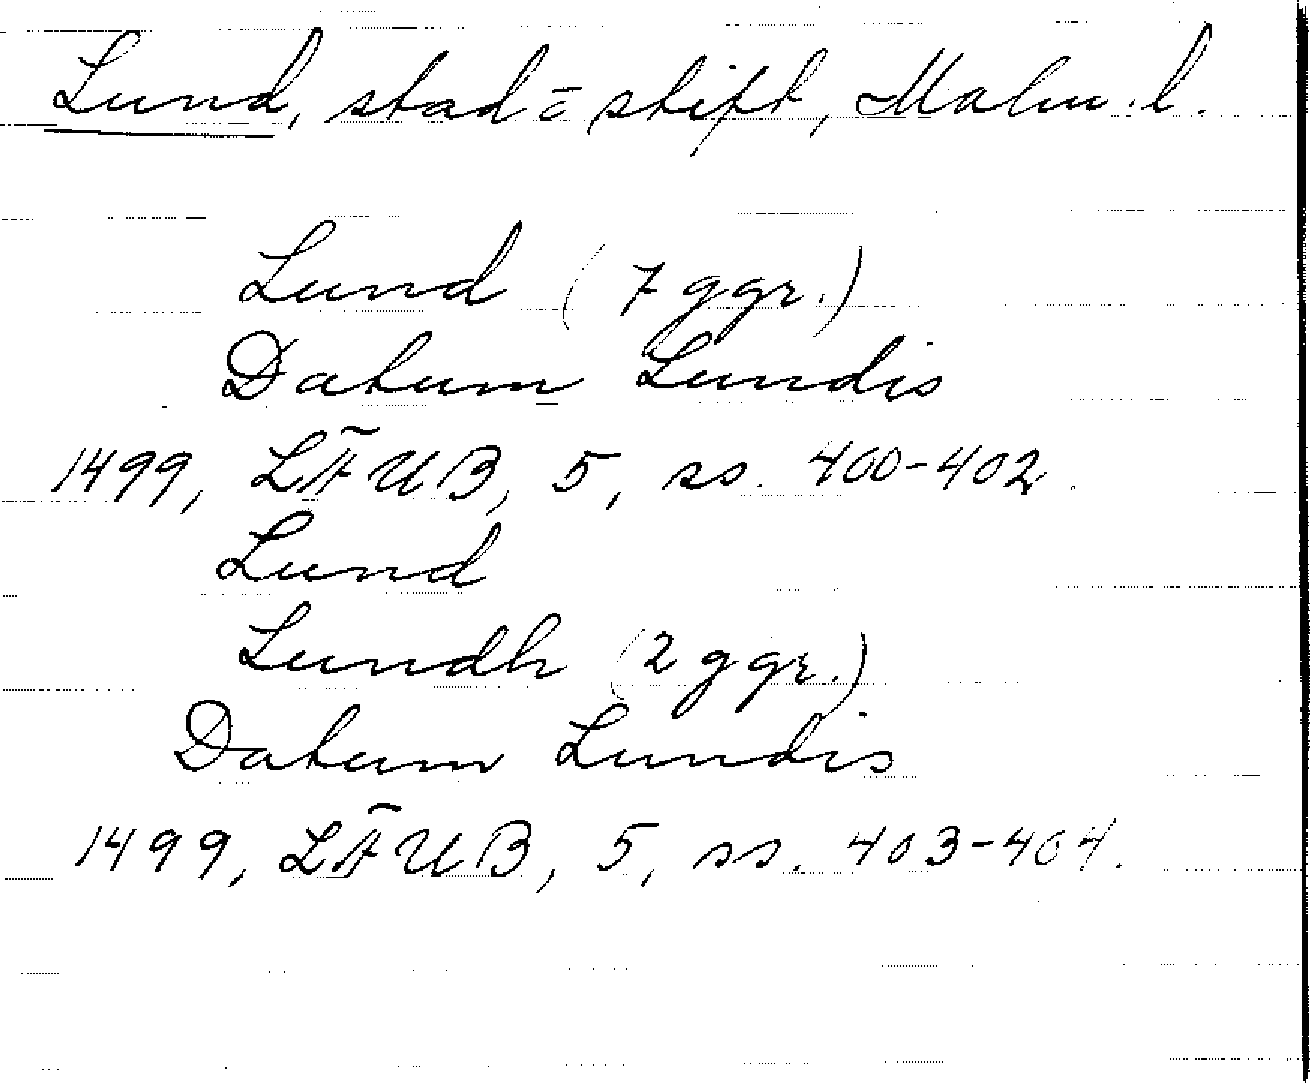 Lund, stad o stift, Malm. l.
Lund (7 ggr.)
Datum Lundis
1499, LÄUB, 5, ss. 400-402.
Lund
Lundh (2 ggr.)
Datum Lundis
1499, LÄUB, 5, ss. 403-404.